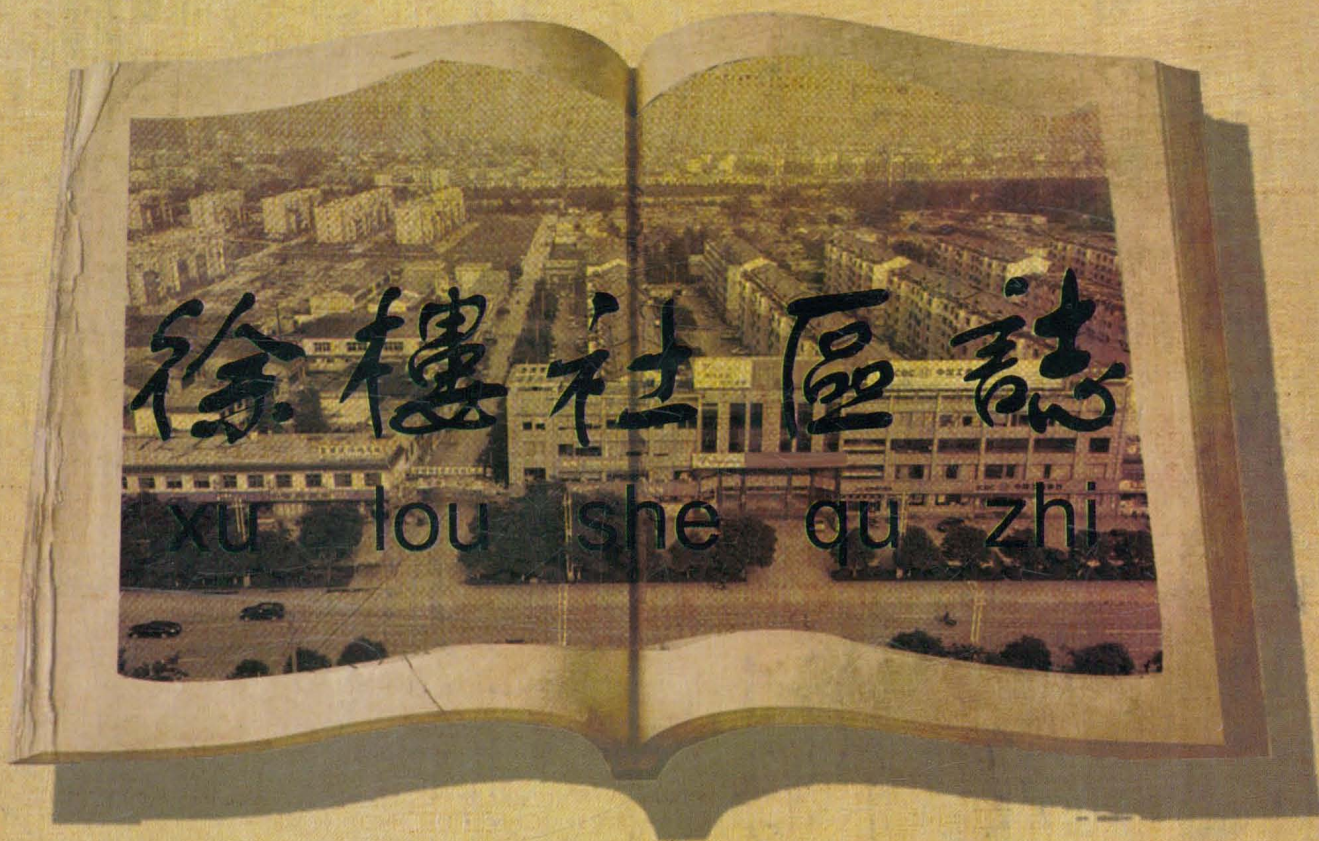 徐樓社區誌
xu lou she qu zhi